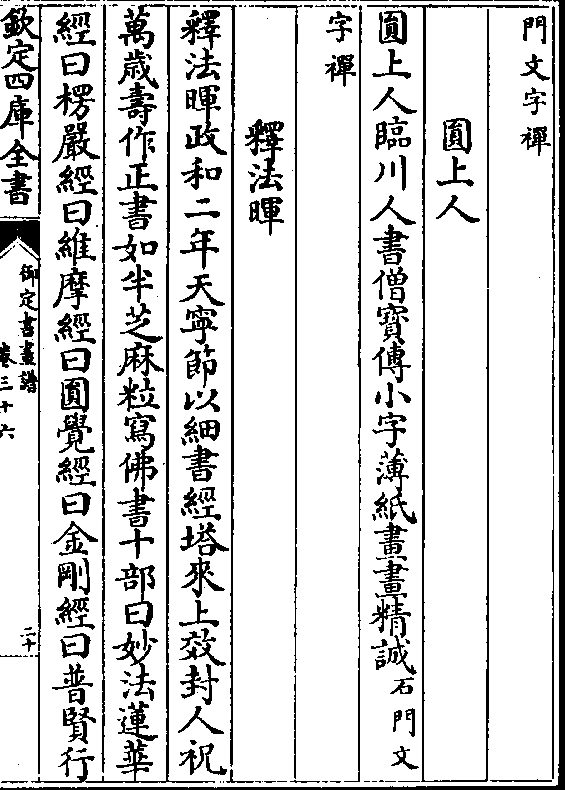 門文字禪
圓上人
圓上人臨川人書僧寳傳小字薄紙畫畫精誠石門文
字禪
釋法暉
釋法暉政和二年天寧節以細書經塔來上效封人祝
萬歲壽作正書如半芝麻粒寫佛書十部曰妙法蓮華
經曰楞嚴經曰維摩經曰圓覺經曰金剛經曰普賢行
欽定四庫全書
御定書畫譜
卷三十六
二十